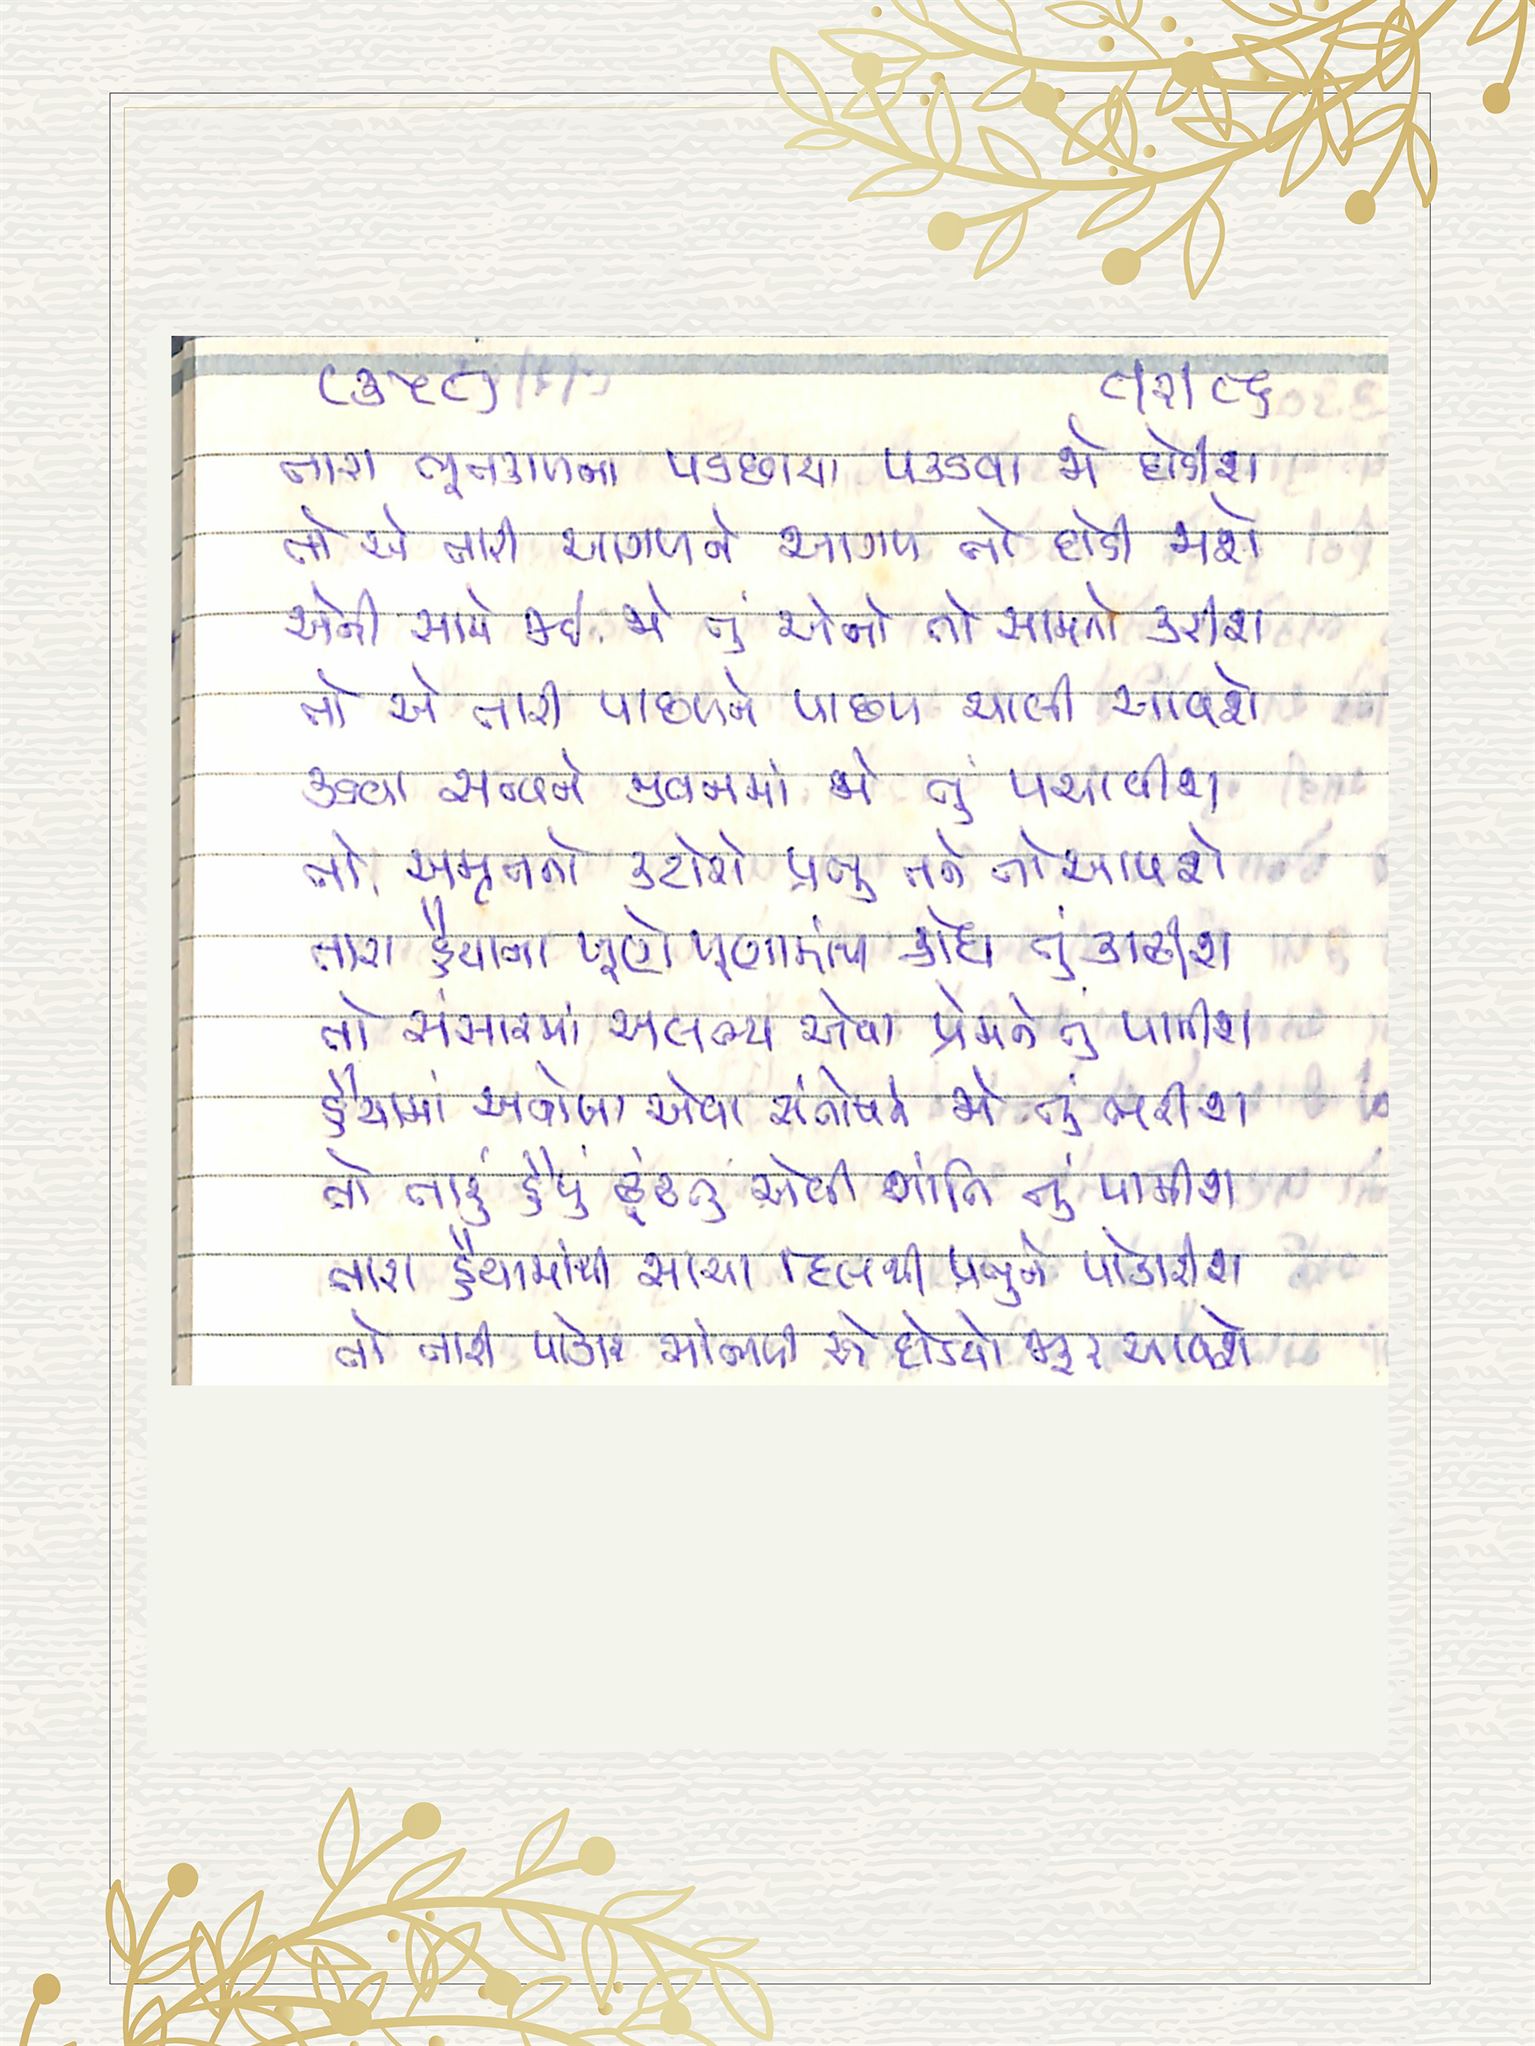 (૩૫૮) ૮/૨/૮૬
તારા ભૂતકાળના પડછાયા પકડવા જો દોડીશ
તો એ તારી આગળને આગળ તો દોડી જાશે
એની સામે જઈ, જો તું એનો તો સામનો કરીશ
તો એ તારી પાછળને પાછળ ચાલી આવશે
કડવા સત્યને જીવનમાં જો તું પચાવીશ
તો, અમૃતનો કટોરો પ્રભુ તને તો આપશે
તારા હૈયાના ખૂણે ખૂણામાંથી ક્રોધ તું કાઢીશ
તો સંસારમાં અલભ્ય એવા પ્રેમને તું પામીશ
હૈયામાં અનોખા એવા સંતોષને જો તું ભરીશ
તો તારું હૈયું ઢૂંઢતું એવી શાંતિ તું પામીશ
તારા હૈયામાંથી સાચા દિલથી પ્રભુને પોકારીશ
તો તારી પોકાર સાંભળી એ દોડયો જરૂર આવશે